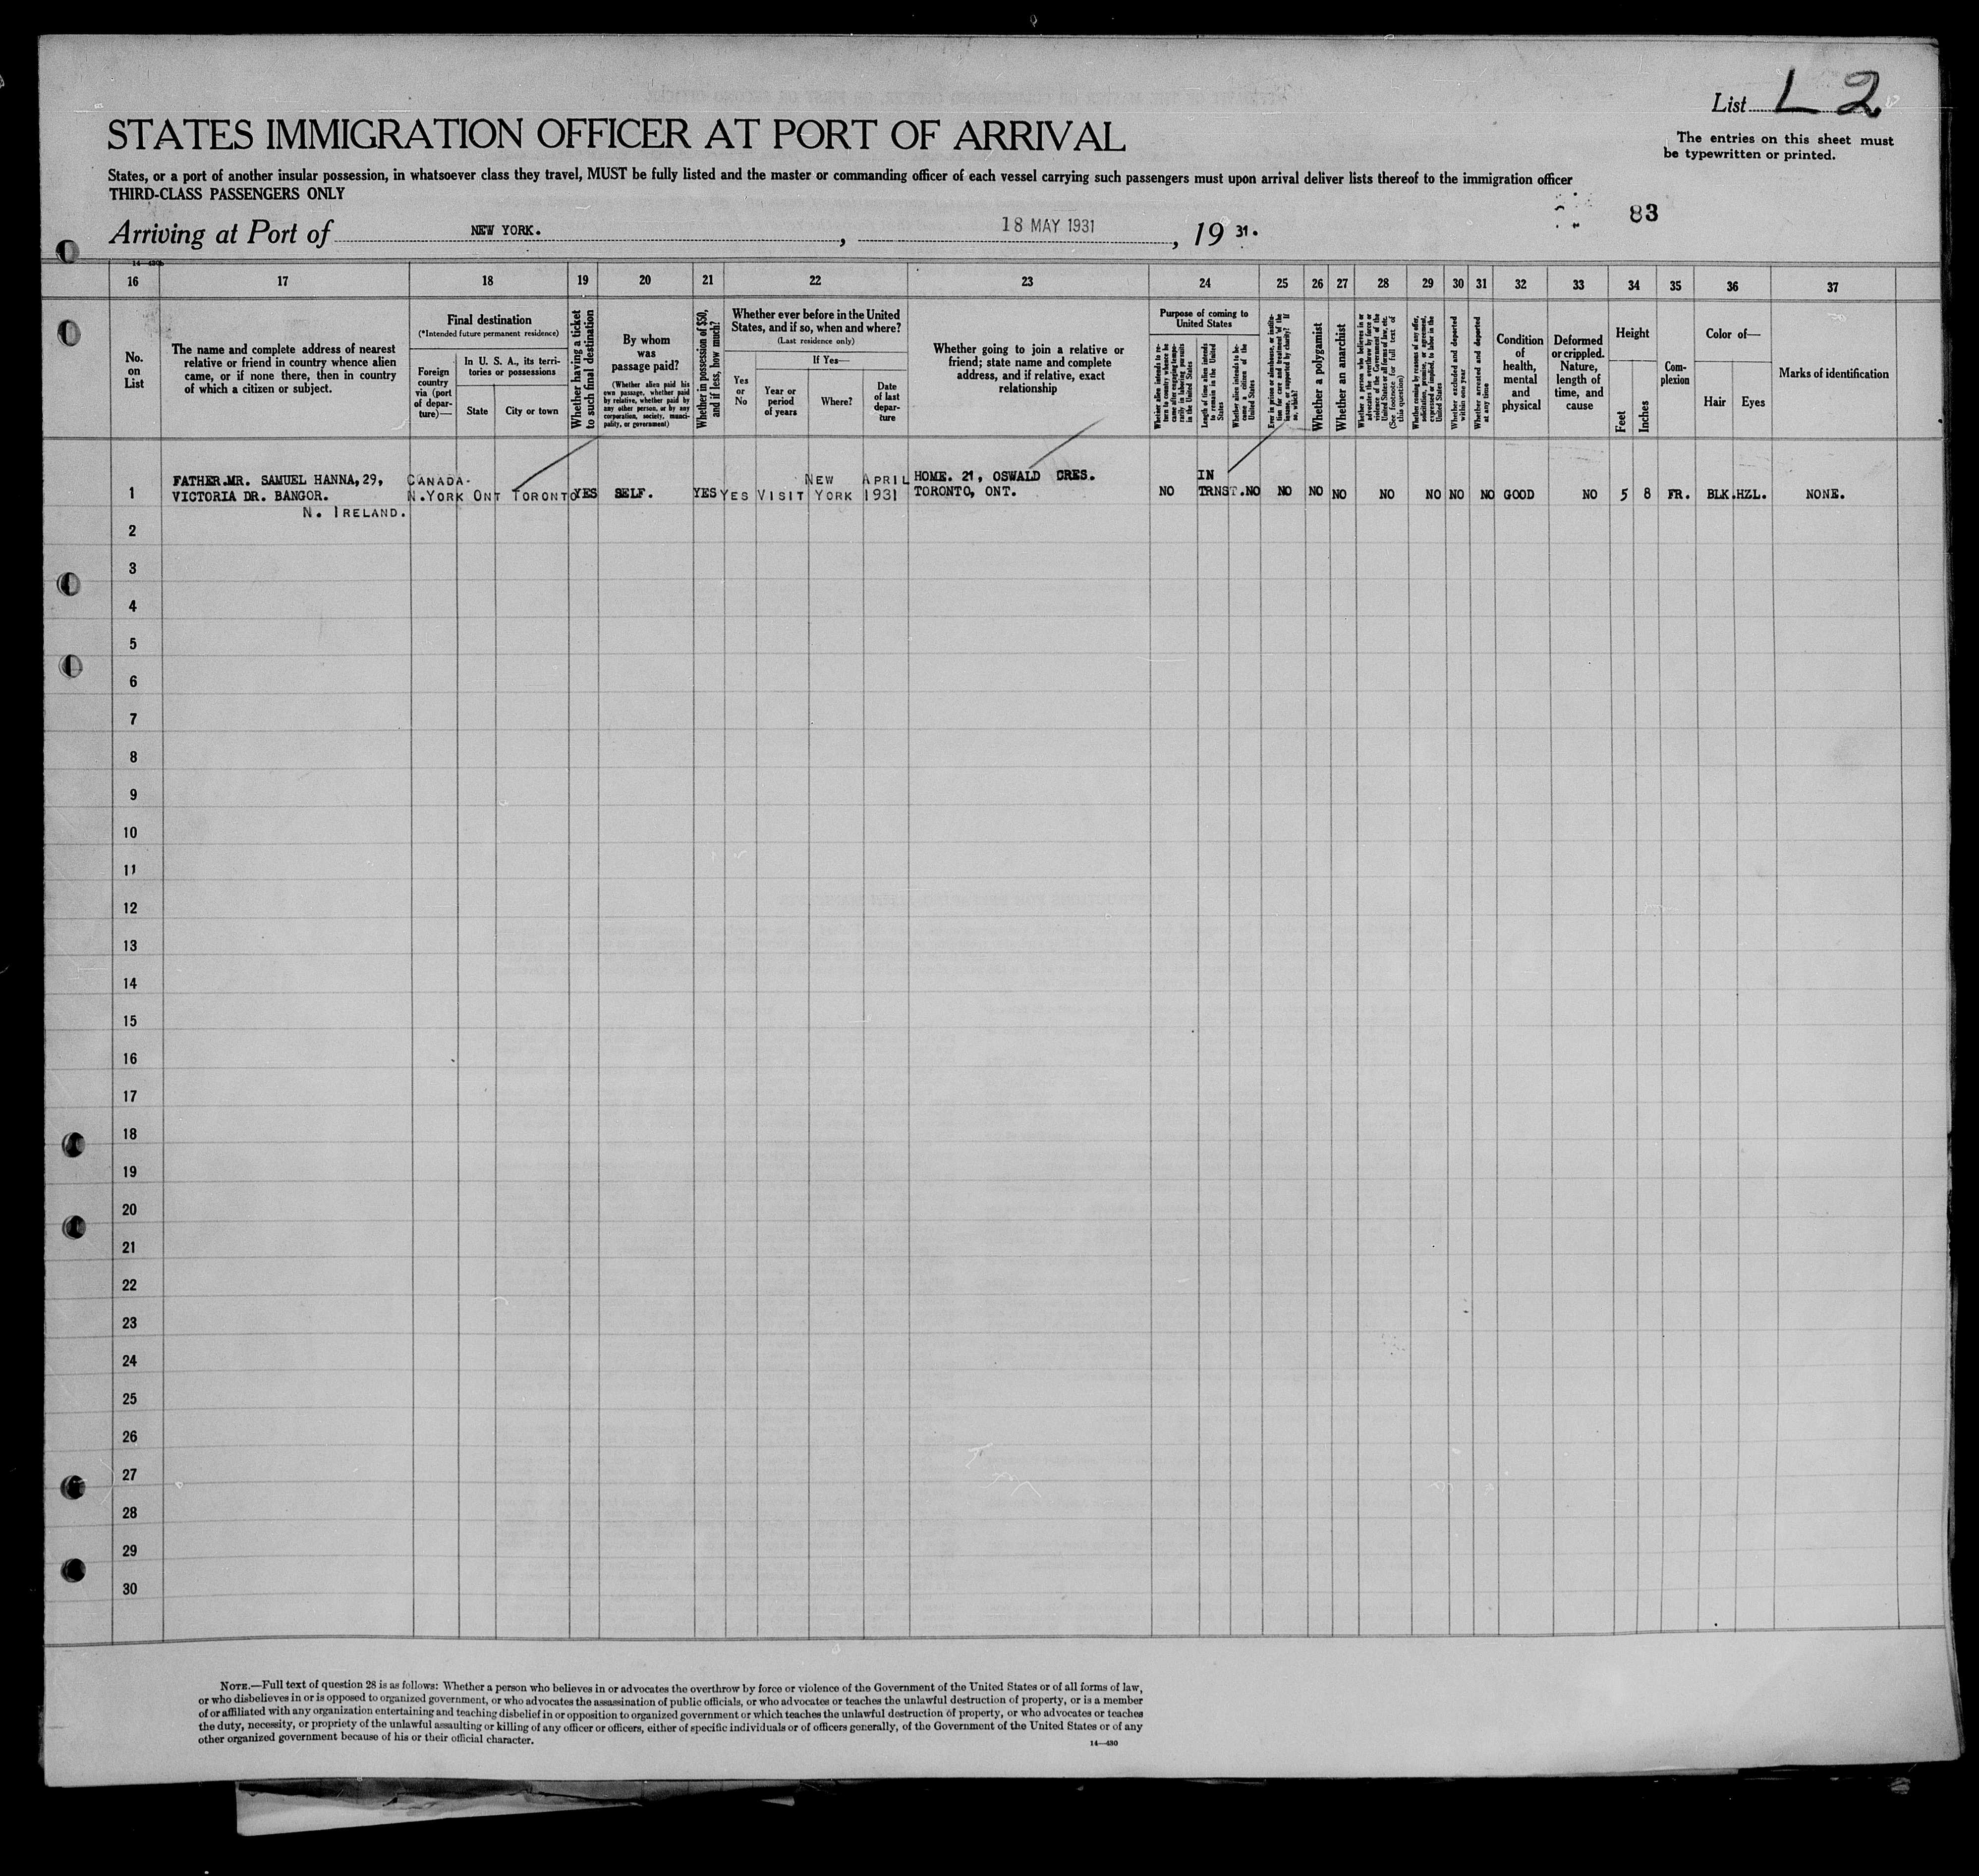 List L 2
STATES IMMIGRATION OFFICER AT PORT OF ARRIVAL
The entries on this sheet must
be typewritten or printed.
States, or a port of another insular possession, in whatsoever class they travel, MUST be fully listed and the master or commanding officer of each vessel carrying such passengers must upon arrival deliver lists thereof to the immigration officer
THIRD-CLASS PASSENGERS ONLY
83
Arriving at Port of NEW YORK. , 18 MAY 1931 , 19 31.
16 17 18 19 20 21 22 23 24 25 26 27 28 29 30 31 32 33 34 35 36 37
No.
on
List
The name and complete address of nearest
relative or friend in country whence alien
came, or if none there, then in country
of which a citizen or subject.
Final destination
(*Intended future permanent residence)
Foreign
country
via (port
of depar-
ture)—
In U. S. A., its terri-
tories or possessions
State
City or town
Whether having a ticket
to such final destination
By whom
was
passage paid?
(Whether alien paid his
own passage, whether paid
by relative, whether paid by
any other person, or by any
corporation, society, munici-
pality, or government)
Whether in possession of $50,
and if less, how much?
Whether ever before in the United
States, and if so, when and where?
(Last residence only)
Yes
or
No
If Yes—
Year or
period
of years
Where?
Date
of last
depar-
ture
Whether going to join a relative or
friend; state name and complete
address, and if relative, exact
relationship
Purpose of coming to
United States
Whether alien intends to re-
turn to country whence he
came after engaging tempo-
rarily in laboring pursuits
in the United States
Length of time alien intends
to remain in the United
States
Whether alien intends to be-
come a citizen of the
United States
Ever in prison or almshouse, or institu-
tion for care and treatment of the
insane, or supported by charity? If
so, which?
Whether a polygamist
Whether an anarchist
Whether a person who believes in or
advocates the overthrow by force or
violence of the Government of the
United States or all forms of law, etc.
(See footnote for full text of
this question)
Whether coming by reason of any offer,
solicitation, promise, or agreement,
expressed or implied, to labor in the
United States
Whether excluded and deported
within one year
Whether arrested and deported
at any time
Condition
of
health,
mental
and
physical
Deformed
or crippled.
Nature,
length of
time, and
cause
Height
Feet
Inches
Com-
plexion
Color of—
Hair
Eyes
Marks of identification
FATHER.MR. SAMUEL HANNA,29, CANADA- NEW APRIL HOME. 21, OSWALD CRES. IN
1 VICTORIA DR. BANGOR. N.YORK ONT TORONTO YES SELF. YES YES VISIT YORK 1931 TORONTO, ONT. NO TRNST. NO NO NO NO NO NO NO NO GOOD NO 5 8 FR. BLK. HZL. NONE.
N. IRELAND.
2
3
4
5
6
7
8
9
10
11
12
13
14
15
16
17
18
19
20
21
22
23
24
25
26
27
28
29
30
NOTE.—Full text of question 28 is as follows: Whether a person who believes in or advocates the overthrow by force or violence of the Government of the United States or of all forms of law,
or who disbelieves in or is opposed to organized government, or who advocates the assassination of public officials, or who advocates or teaches the unlawful destruction of property, or is a member
of or affiliated with any organization entertaining and teaching disbelief in or opposition to organized government or which teaches the unlawful destruction of property, or who advocates or teaches
the duty, necessity, or propriety of the unlawful assaulting or killing of any officer or officers, either of specific individuals or of officers generally, of the Government of the United States or of any
other organized government because of his or their official character.
14—430